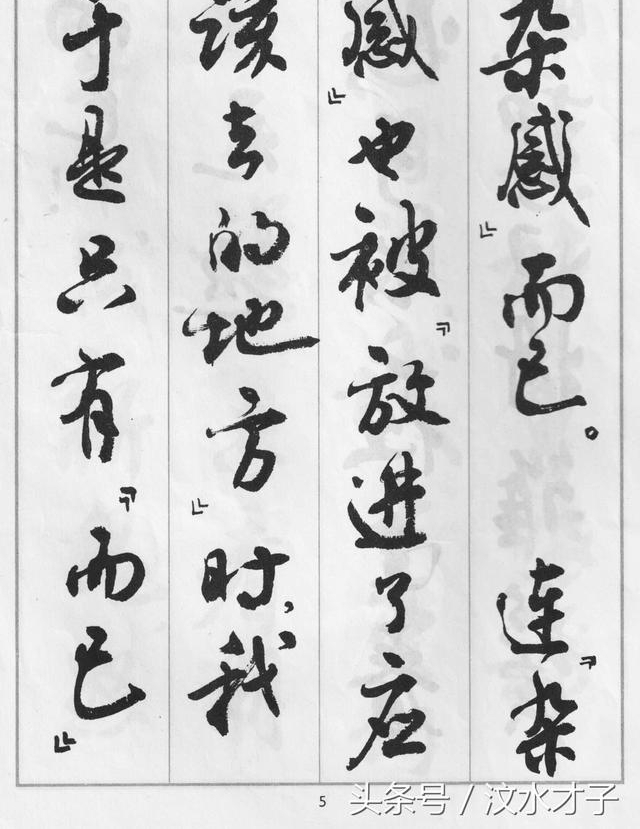 杂感』而已。 连『杂
感』也被『放进了应
该去的地方』时,我
于是只有『而已』
5
头条号 / 汶水才子